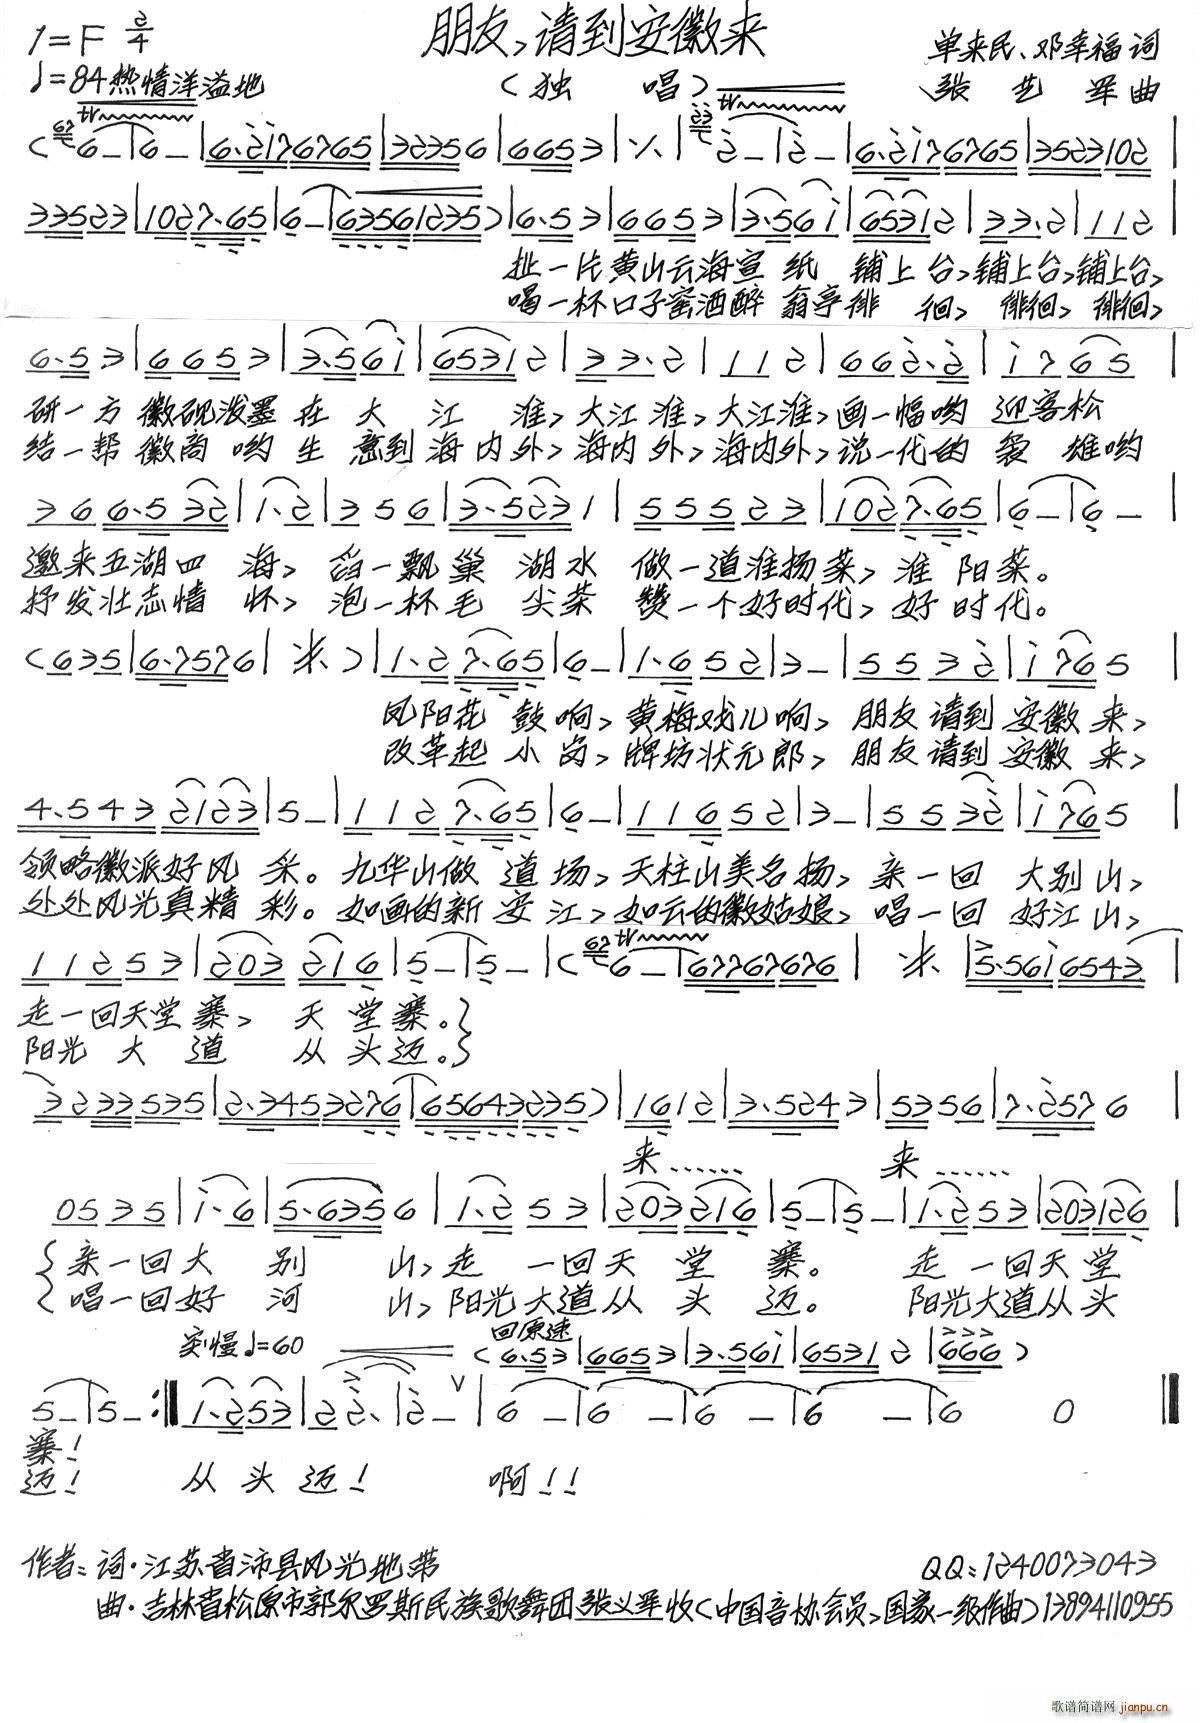 朋友,请到安徽来
1=F 2/4
♩=84热情洋溢地
(独 唱)
单来民、邓幸福 词
张艺军 曲
(6 - | 6 - | 6.2176765 | 3235 6 | 665 3 | ٪ | 2 - | 2 - | 6.2176765 | 3523102 |
33523 | 1027.65 | 6 - | 63561235) | 6.5 3 | 6 6 5 3 | 3.56 1 | 6531 2 | 3 3.2 | 1 1 2 |
扯一片黄山云海宣 纸 铺上 台,铺上台,铺上台,
喝一杯口子窖酒醉 翁亭徘 徊, 徘徊, 徘徊,
6.5 3 | 6 6 5 3 | 3.56 1 | 6531 2 | 3 3.2 | 1 1 2 | 6 6 2.2 | 1 7 6 5 |
研一方 徽砚泼墨 在 大 江 淮,大江淮,大江淮,画一幅哟 迎客松
结一帮 徽商 哟 生 意到 海 内 外,海内外,海内外,说一代的 袅 雄哟
3 6 6.5 32 | 1.2 | 3 5 6 | 3.523 1 | 5 5 5 2 3 | 1027.65 | 6 - | 6 - |
邀来五湖四 海, 舀一瓢巢 湖水 做一道淮扬菜, 淮 阳菜。
抒发壮志情 怀, 泡一杯毛 尖茶 赞一个好时代, 好 时代。
(635 | 6.7576 | 米.) | 1.2 7.65 | 6 - | 1.6 5 2 | 3 - | 5 5 3 2 | 1 76 5 |
凤阳花 鼓响,黄梅戏儿响, 朋友请到 安徽 来,
改革起 小 岗,牌坊状元郎, 朋友请到 安徽 来,
4.5 4 3 2123 | 5 - | 1 1 2 7.65 | 6 - | 1 1 6 5 2 | 3 - | 5 5 32 | 1 765 |
领略徽派好风 采。九华山做 道场,天柱山美名扬, 亲一回 大别山,
处处风光真精 彩。如画的新 安 江,如云的徽姑娘, 唱一回 好江山,
1 1 2 5 3 | 203 216 | 5 - | 5 - | (6 - | 67767676 | 米. | 5.561 6543 |
走一回天堂 寨, 天 堂寨。}
阳光 大 道 从 头迈。}
3 233535 | 2.3453276 | 65643235) | 161 2 | 3.524 3 | 5356 | 7.257 6 |
来…… 来……
05 3 5 | 1.6 | 5.635 6 | 1.2 5 3 | 203 216 | 5 - | 5 - | 1.2 5 3 | 203126 |
{亲一回大 别 山,走 一回天 堂 寨。 走 一回天堂
{唱一回好 河 山,阳光大道从 头 迈。 阳光大道从头
突慢♩=60 回原速
(6.53 | 665 3 | 3.561 | 6531 2 | 666)
5 - | 5 - :‖ 1.253 | 2 2. | 2 - ∨ | 6 - | 6 - | 6 - | 6 - | 6 0 ‖
寨!
迈! 从 头 迈! 啊!!
作者:词·江苏省沛县风光地带 QQ:1240073043
曲·吉林省松原市郭尔罗斯民族歌舞团张义军收(中国音协会员,国家一级作曲)13894110955
歌谱简谱网 jianpu.cn